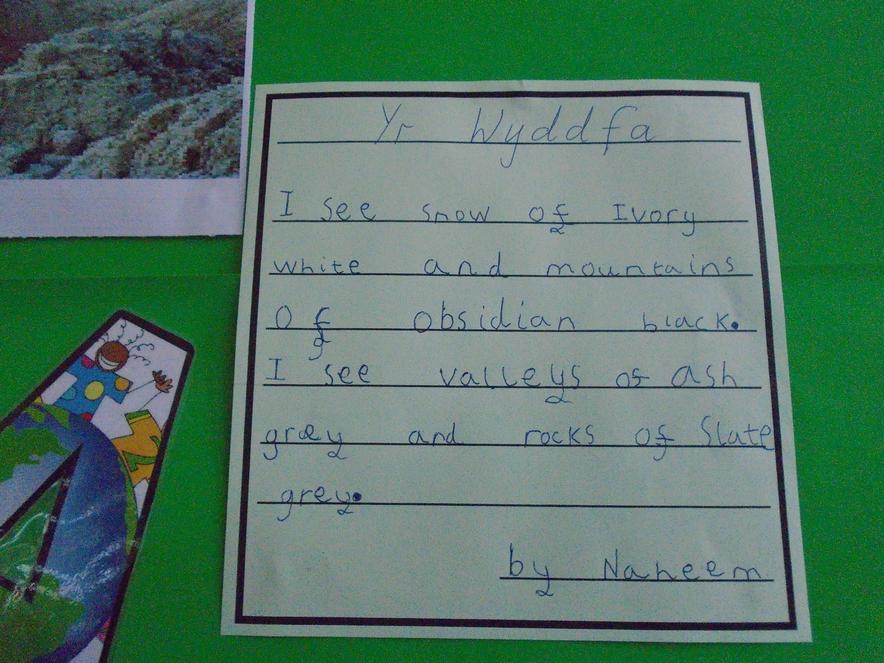 Yr Wyddfa
I see snow of Ivory
white and mountains
Of obsidian black.
I see valleys of ash
grey and rocks of Slate
grey.
by Naheem